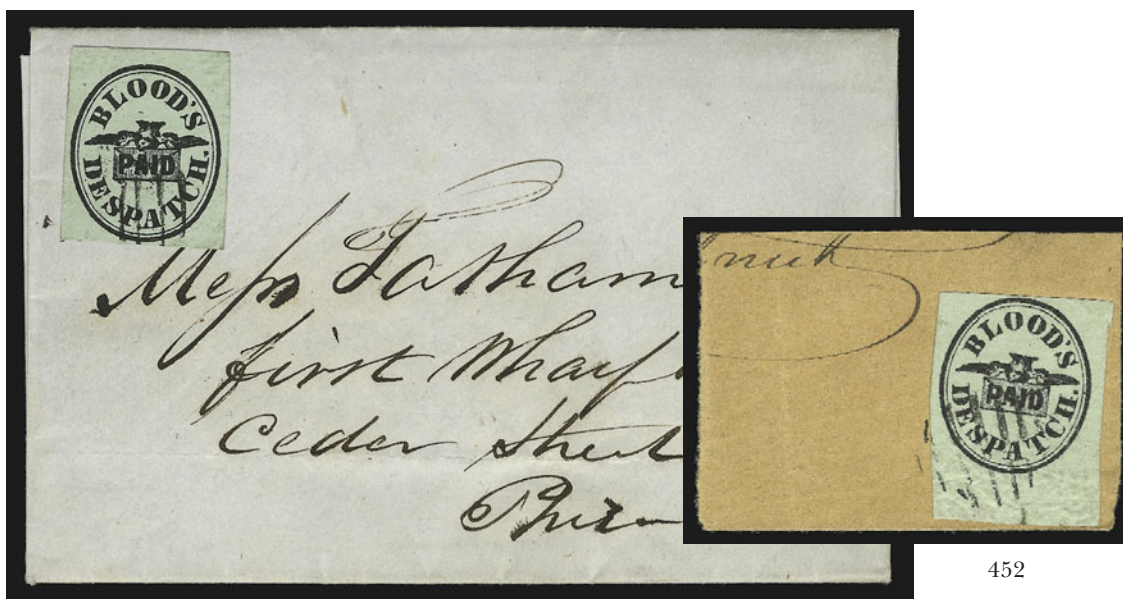 BLOOD'S
PAID
DESPATCH.
Mess Tatham
first Wharf
Cedar Street
BLOOD'S
PAID
DESPATCH.
452